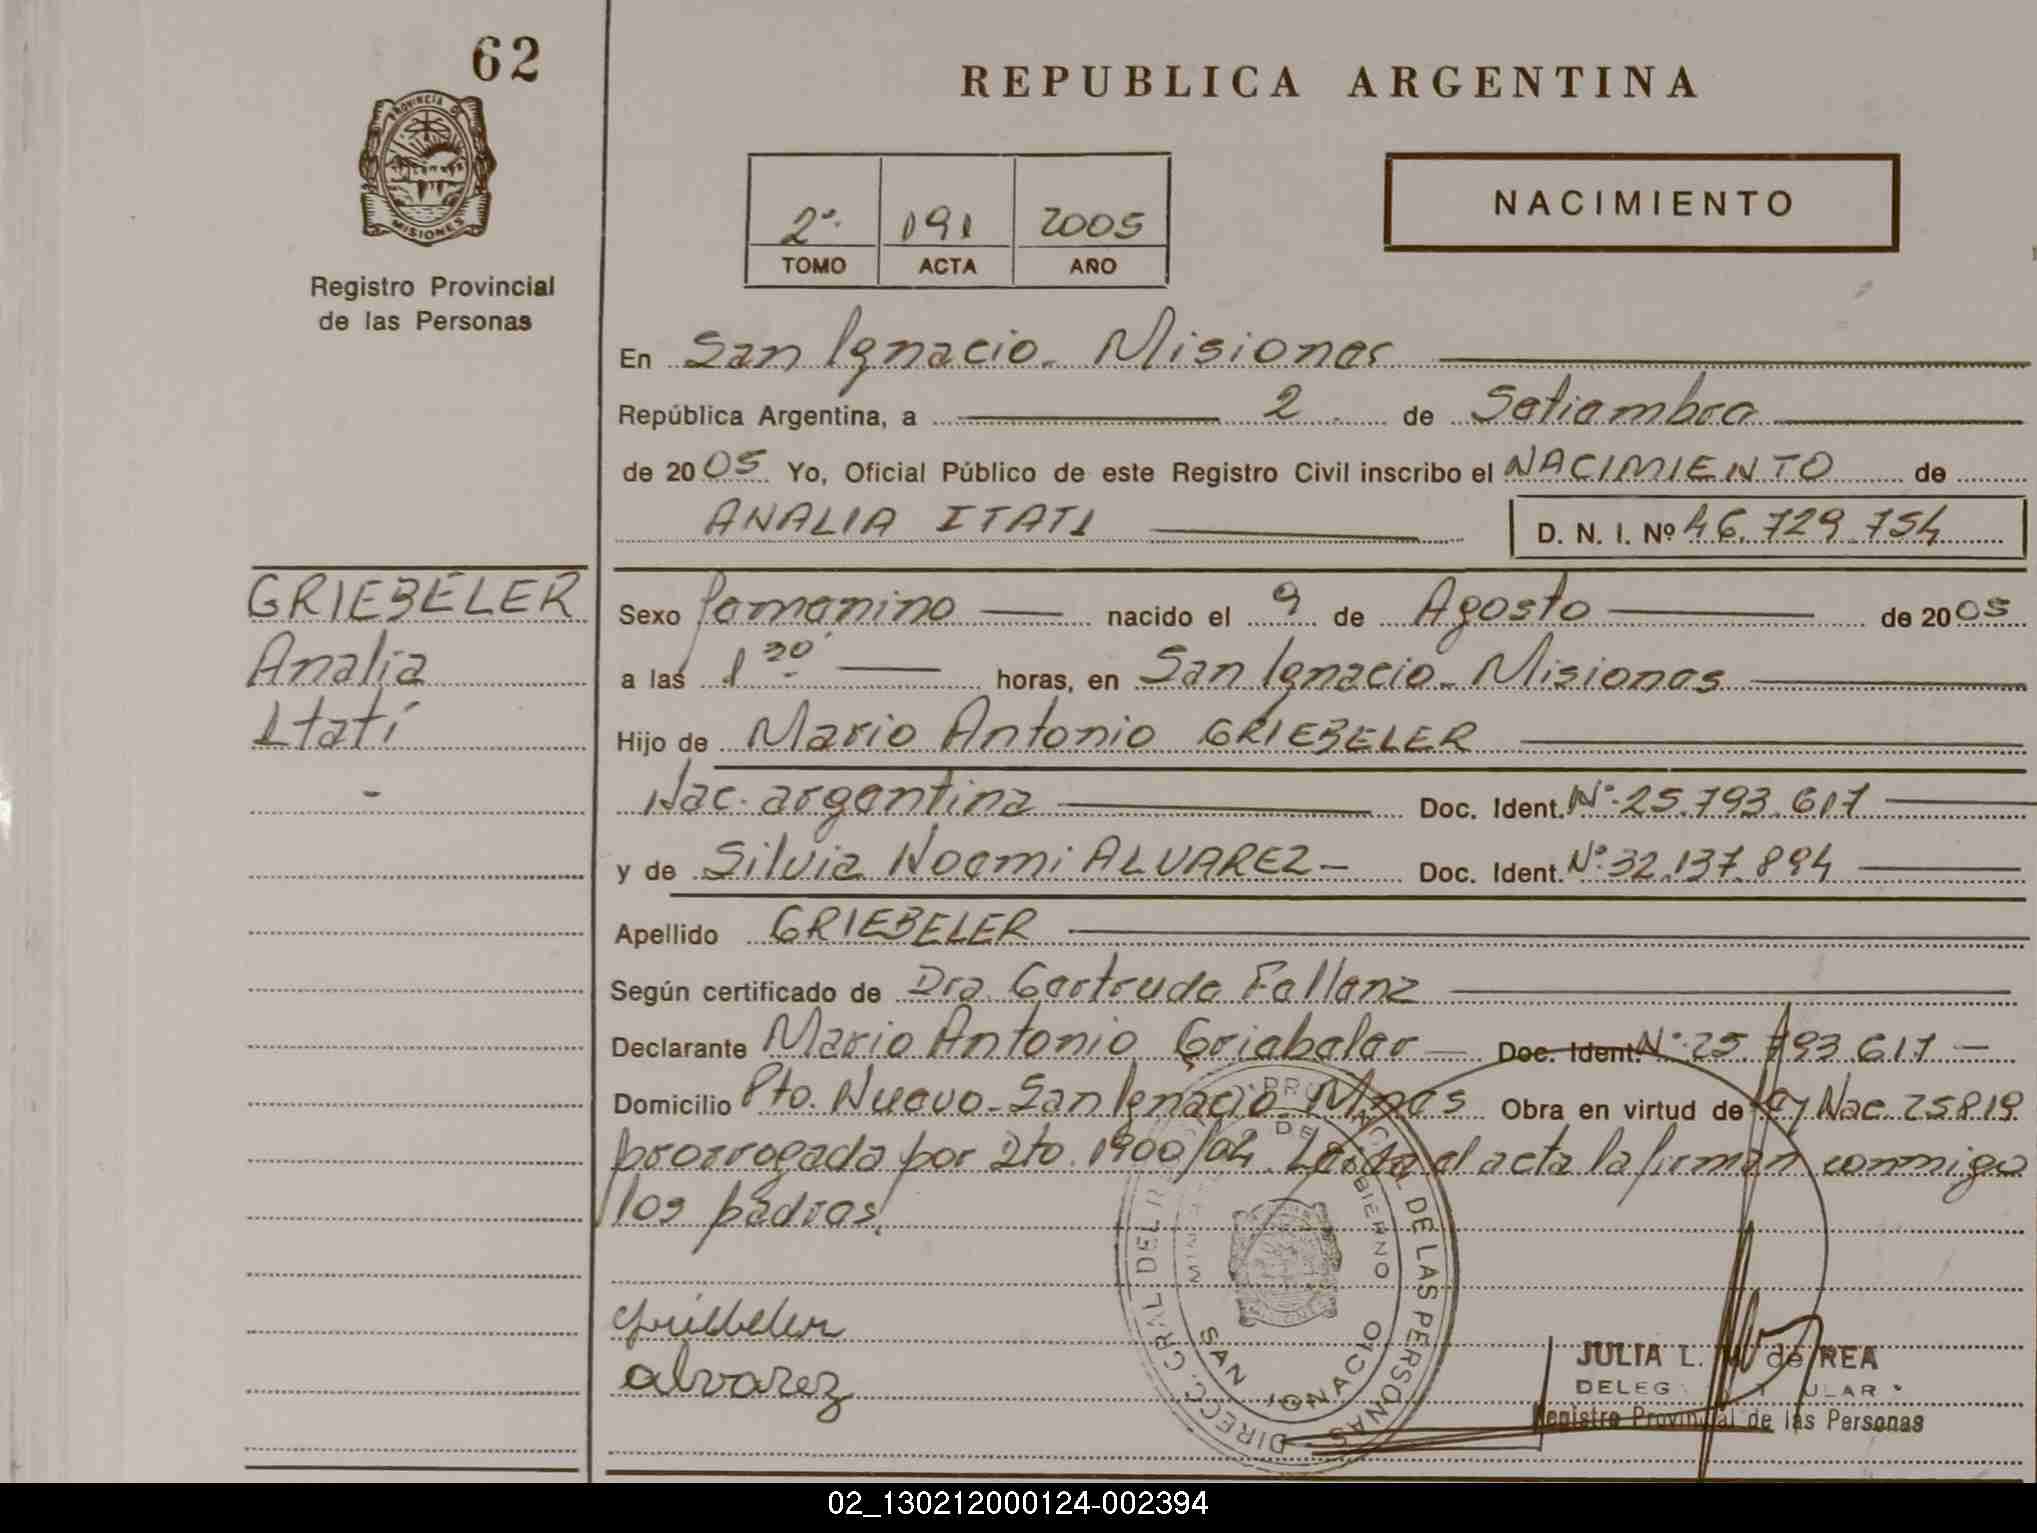 62
REPUBLICA ARGENTINA
PROVINCIA D
MISIONES
Registro Provincial
de las Personas
2º. 191 2005
TOMO ACTA AÑO
NACIMIENTO
En San Ignacio. Misiones
República Argentina, a 2 de Setiembre
de 2005 Yo, Oficial Público de este Registro Civil inscribo el NACIMIENTO de
ANALIA ITATI D. N. I. Nº 46.729.754
GRIEBELER
Analia
Itatí
-
Sexo femenino nacido el 9 de Agosto de 2005
a las 1 horas, en San Ignacio - Misiones
Hijo de Mario Antonio GRIEBELER
Nac. argentina Doc. Ident. Nº. 25.793.617
y de Silvia Noemi ALVAREZ - Doc. Ident. Nº. 32.137.894
Apellido GRIEBELER
Según certificado de Dra. Gertrude Fallenz
Declarante Mario Antonio Griebeler Doc. Ident. Nº. 25.793.617 -
Domicilio Pto. Nuevo - San Ignacio - Mnes Obra en virtud de Ley Nac. 25819
prorrogada por Dto. 1900/04. Leida el acta la firman conmigo
los padres.
Griebeler
alvarez
DIRECC. GRAL. DEL PROVINCIAL DE LAS PERSONAS
DE GOBIERNO
SAN IGNACIO
JULIA L. de REA
Registro Provincial de las Personas
02_130212000124-002394